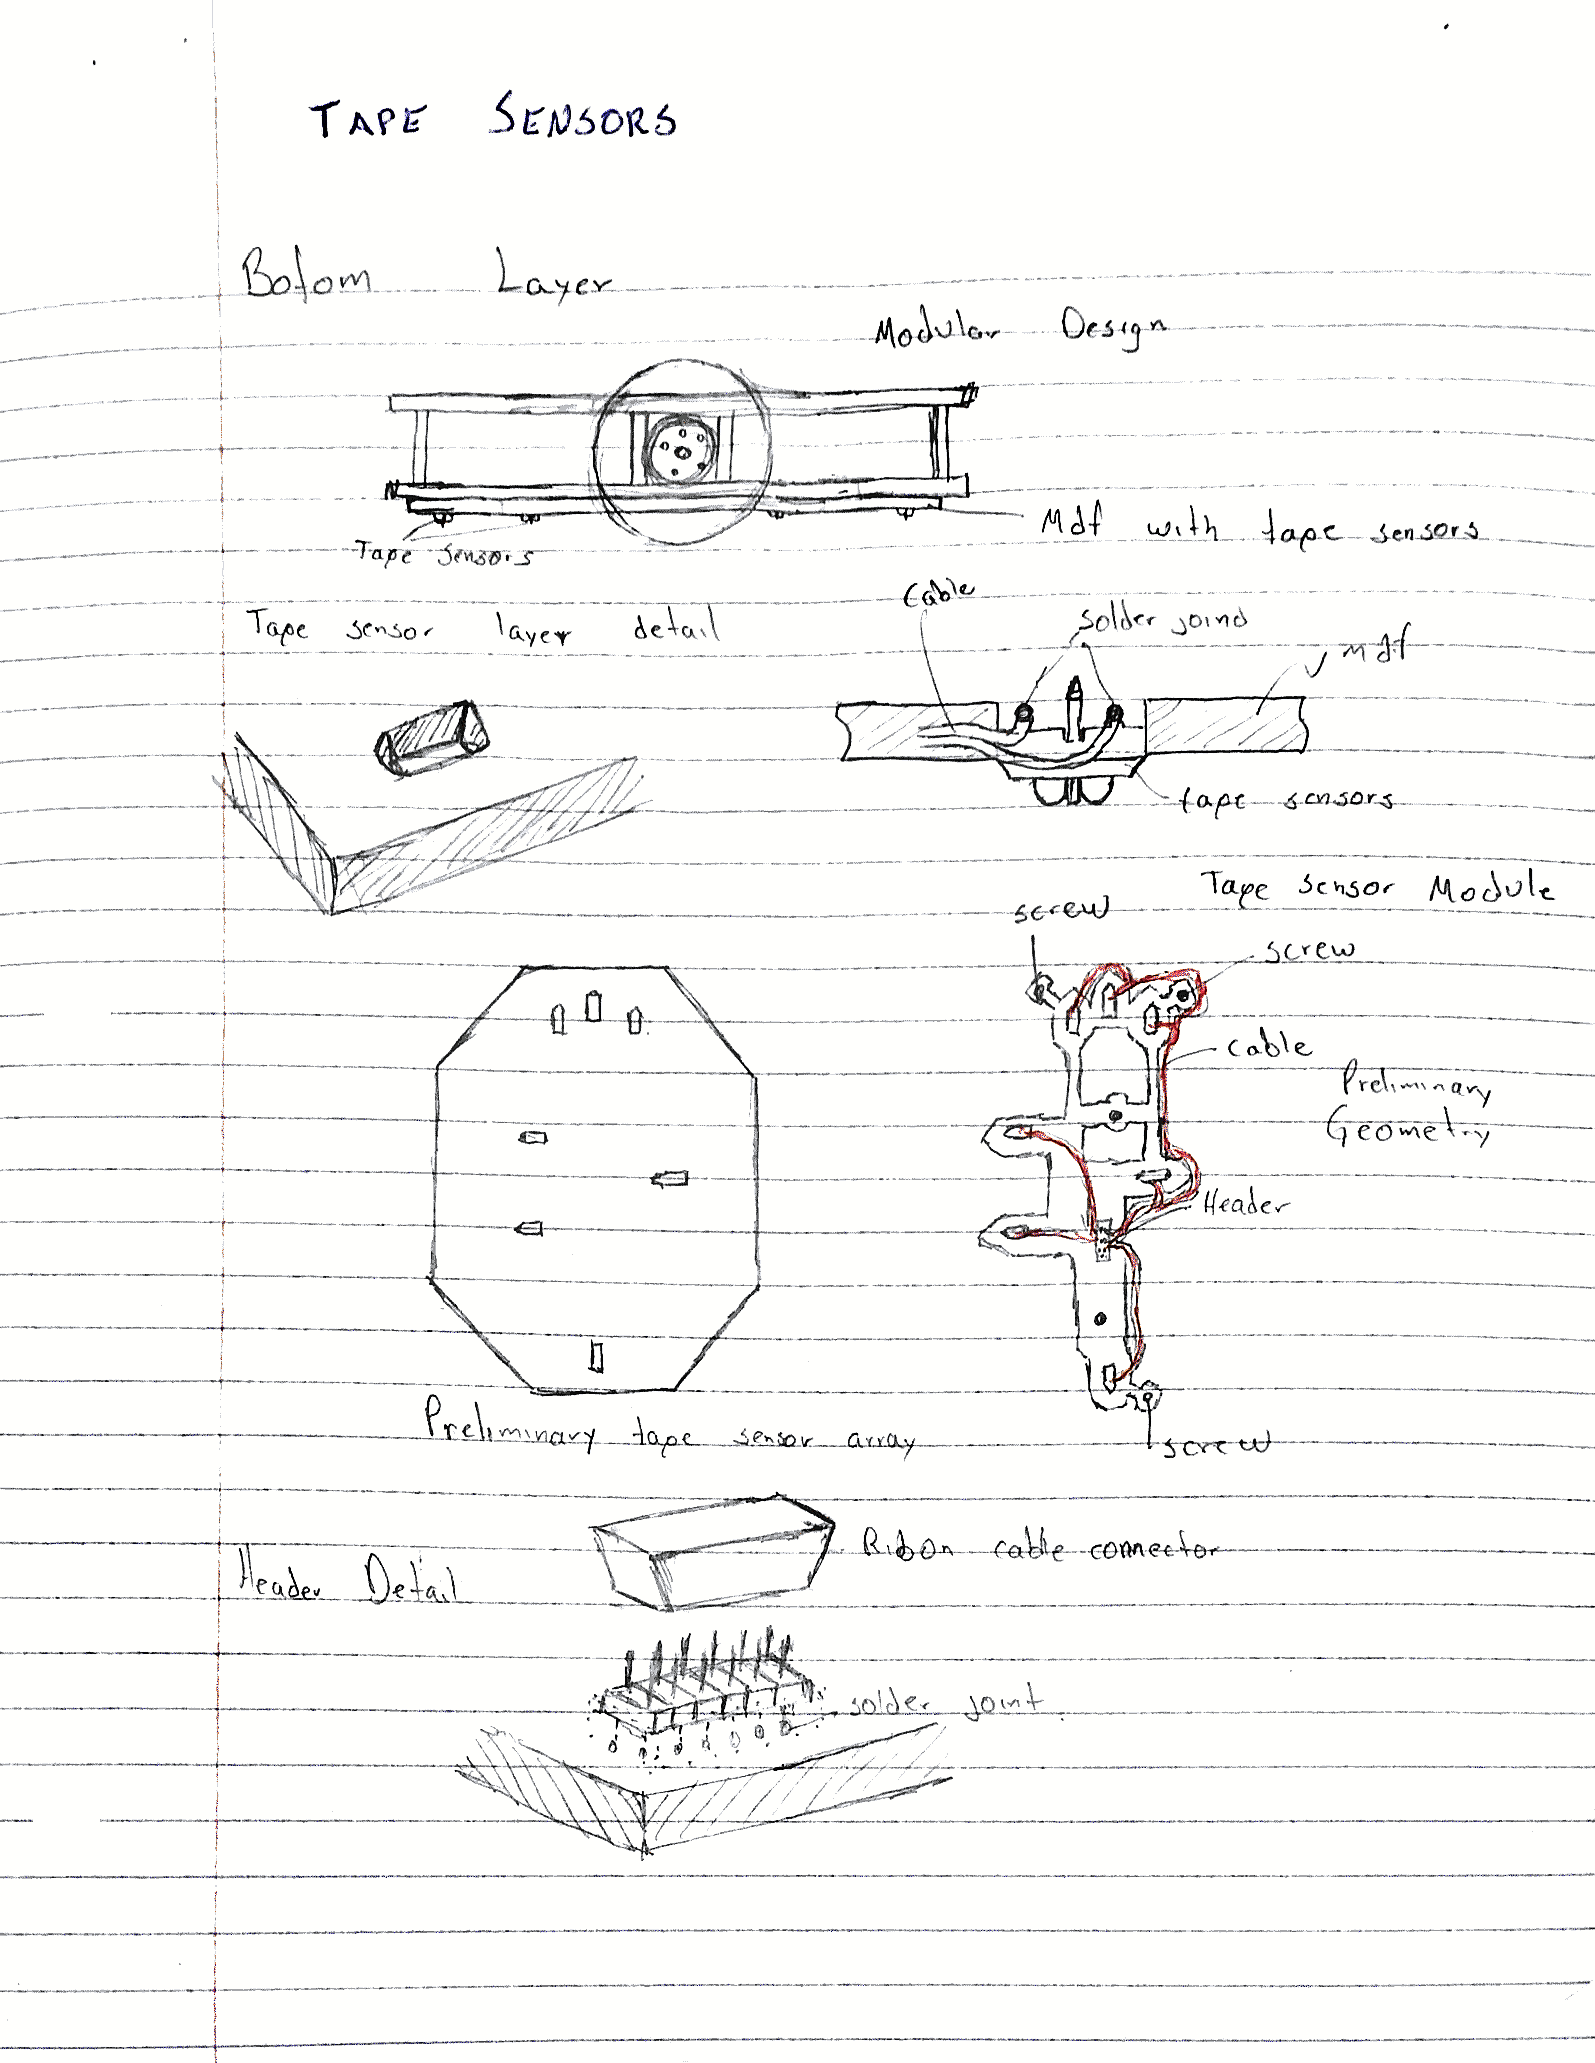 TAPE SENSORS
Botom Layer
Modular Design
Mdf with tape sensors
Tape sensors
Tape sensor layer detail
Cable
solder joind
Mdf
tape sensors
Tape sensor Module
screw
screw
cable
Preliminary
Geometry
Header
Preliminary tape sensor array
screw
Ribon cable connector
Header Detail
solder joint